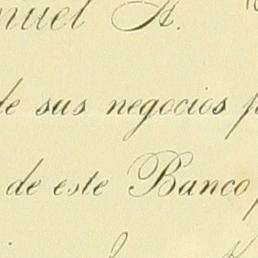 nuel A.
de sus negocios p
de este Banco